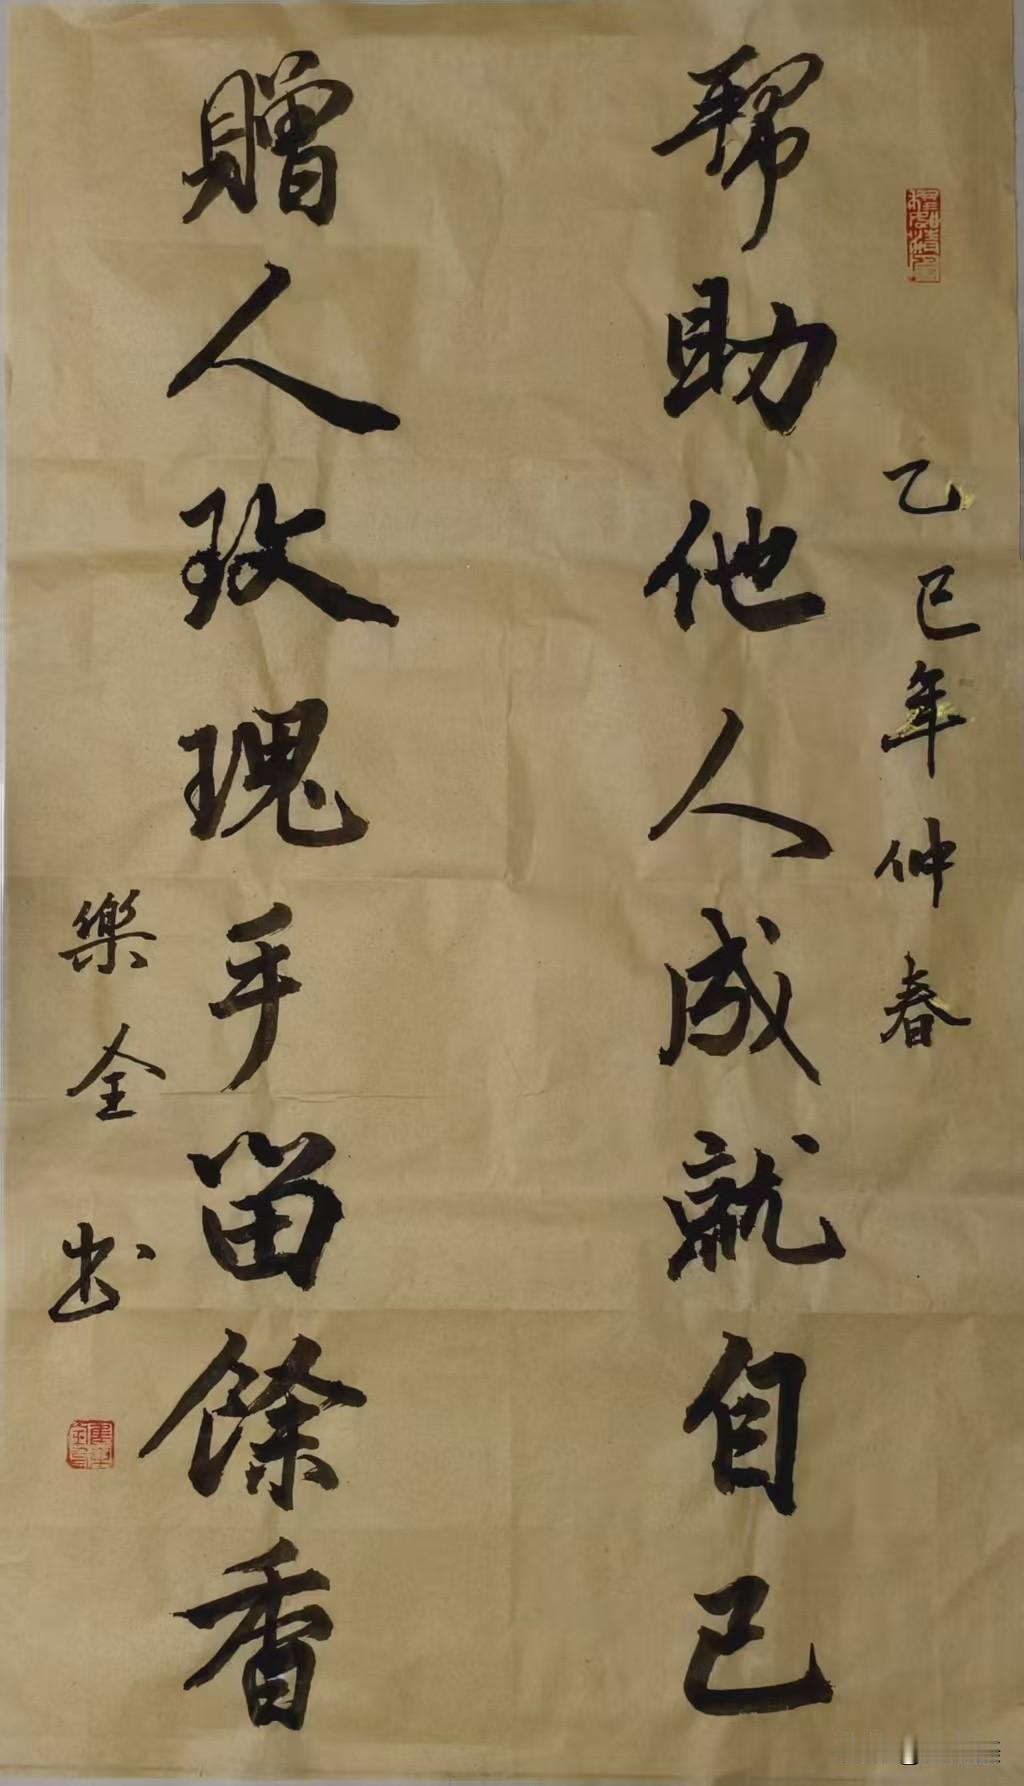 乙巳年仲春
幫助他人成就自己
贈人玫瑰手留餘香
樂全书